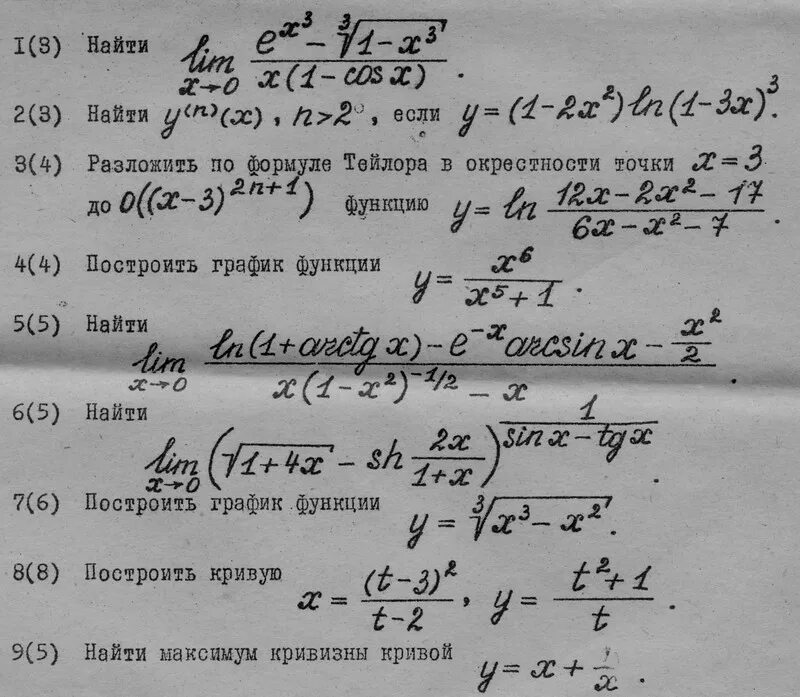 1(3) Найти lim x→0 (e^(x^3) − ∛(1−x^3)) / (x(1−cosx)) .
2(3) Найти y^(n)(x), n>2, если y=(1−2x^2)ln(1−3x)^3.
3(4) Разложить по формуле Тейлора в окрестности точки x=3
до o((x−3)^(2n+1)) функцию y=ln (12x−2x^2−17)/(6x−x^2−7) .
4(4) Построить график функции y= x^6/(x^5+1) .
5(5) Найти
lim x→0 (ln(1+arctg x)−e^(−x) arcsin x − x^2/2) / (x(1−x^2)^(−1/2) − x) .
6(5) Найти
lim x→0 (√(1+4x) − sh 2x/(1+x))^(1/(sinx−tgx))
7(6) Построить график функции y=∛(x^3−x^2).
8(8) Построить кривую x= (t−3)^2/(t−2) , y= (t^2+1)/t .
9(5) Найти максимум кривизны кривой y=x+1/x .